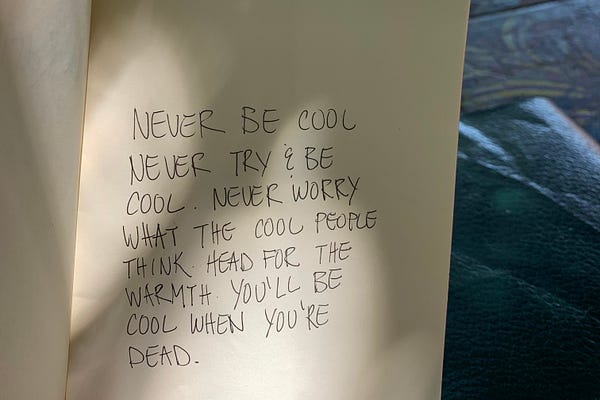 NEVER BE COOL
NEVER TRY & BE
COOL. NEVER WORRY
WHAT THE COOL PEOPLE
THINK. HEAD FOR THE
WARMTH. YOU'LL BE
COOL WHEN YOU'RE
DEAD.